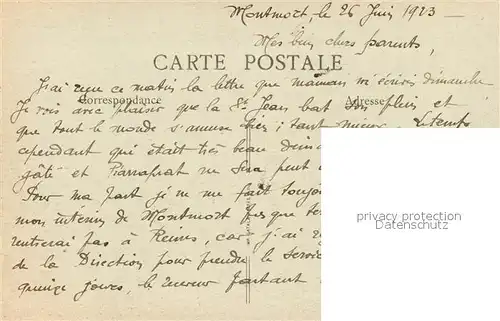 Montmort, le 26 Juin 1923
Mes bien chers parents,
CARTE POSTALE
J'ai reçu ce matin la lettre que maman m'écrivit dimanche
Correspondance
Adresse
Je vois avec plaisir que la St Jean bat son plein et
que tout le monde s'amuse bien ; tant mieux. Le temps
cependant qui était très beau
gâté et ne sera peut
Pour ma part je ne me fait toujours
mon intérim de Montmort que
rentrerai pas à Reims, car j'ai
de la Direction pour prendre le service
quinze jours, le receveur partant
privacy protection
Datenschutz